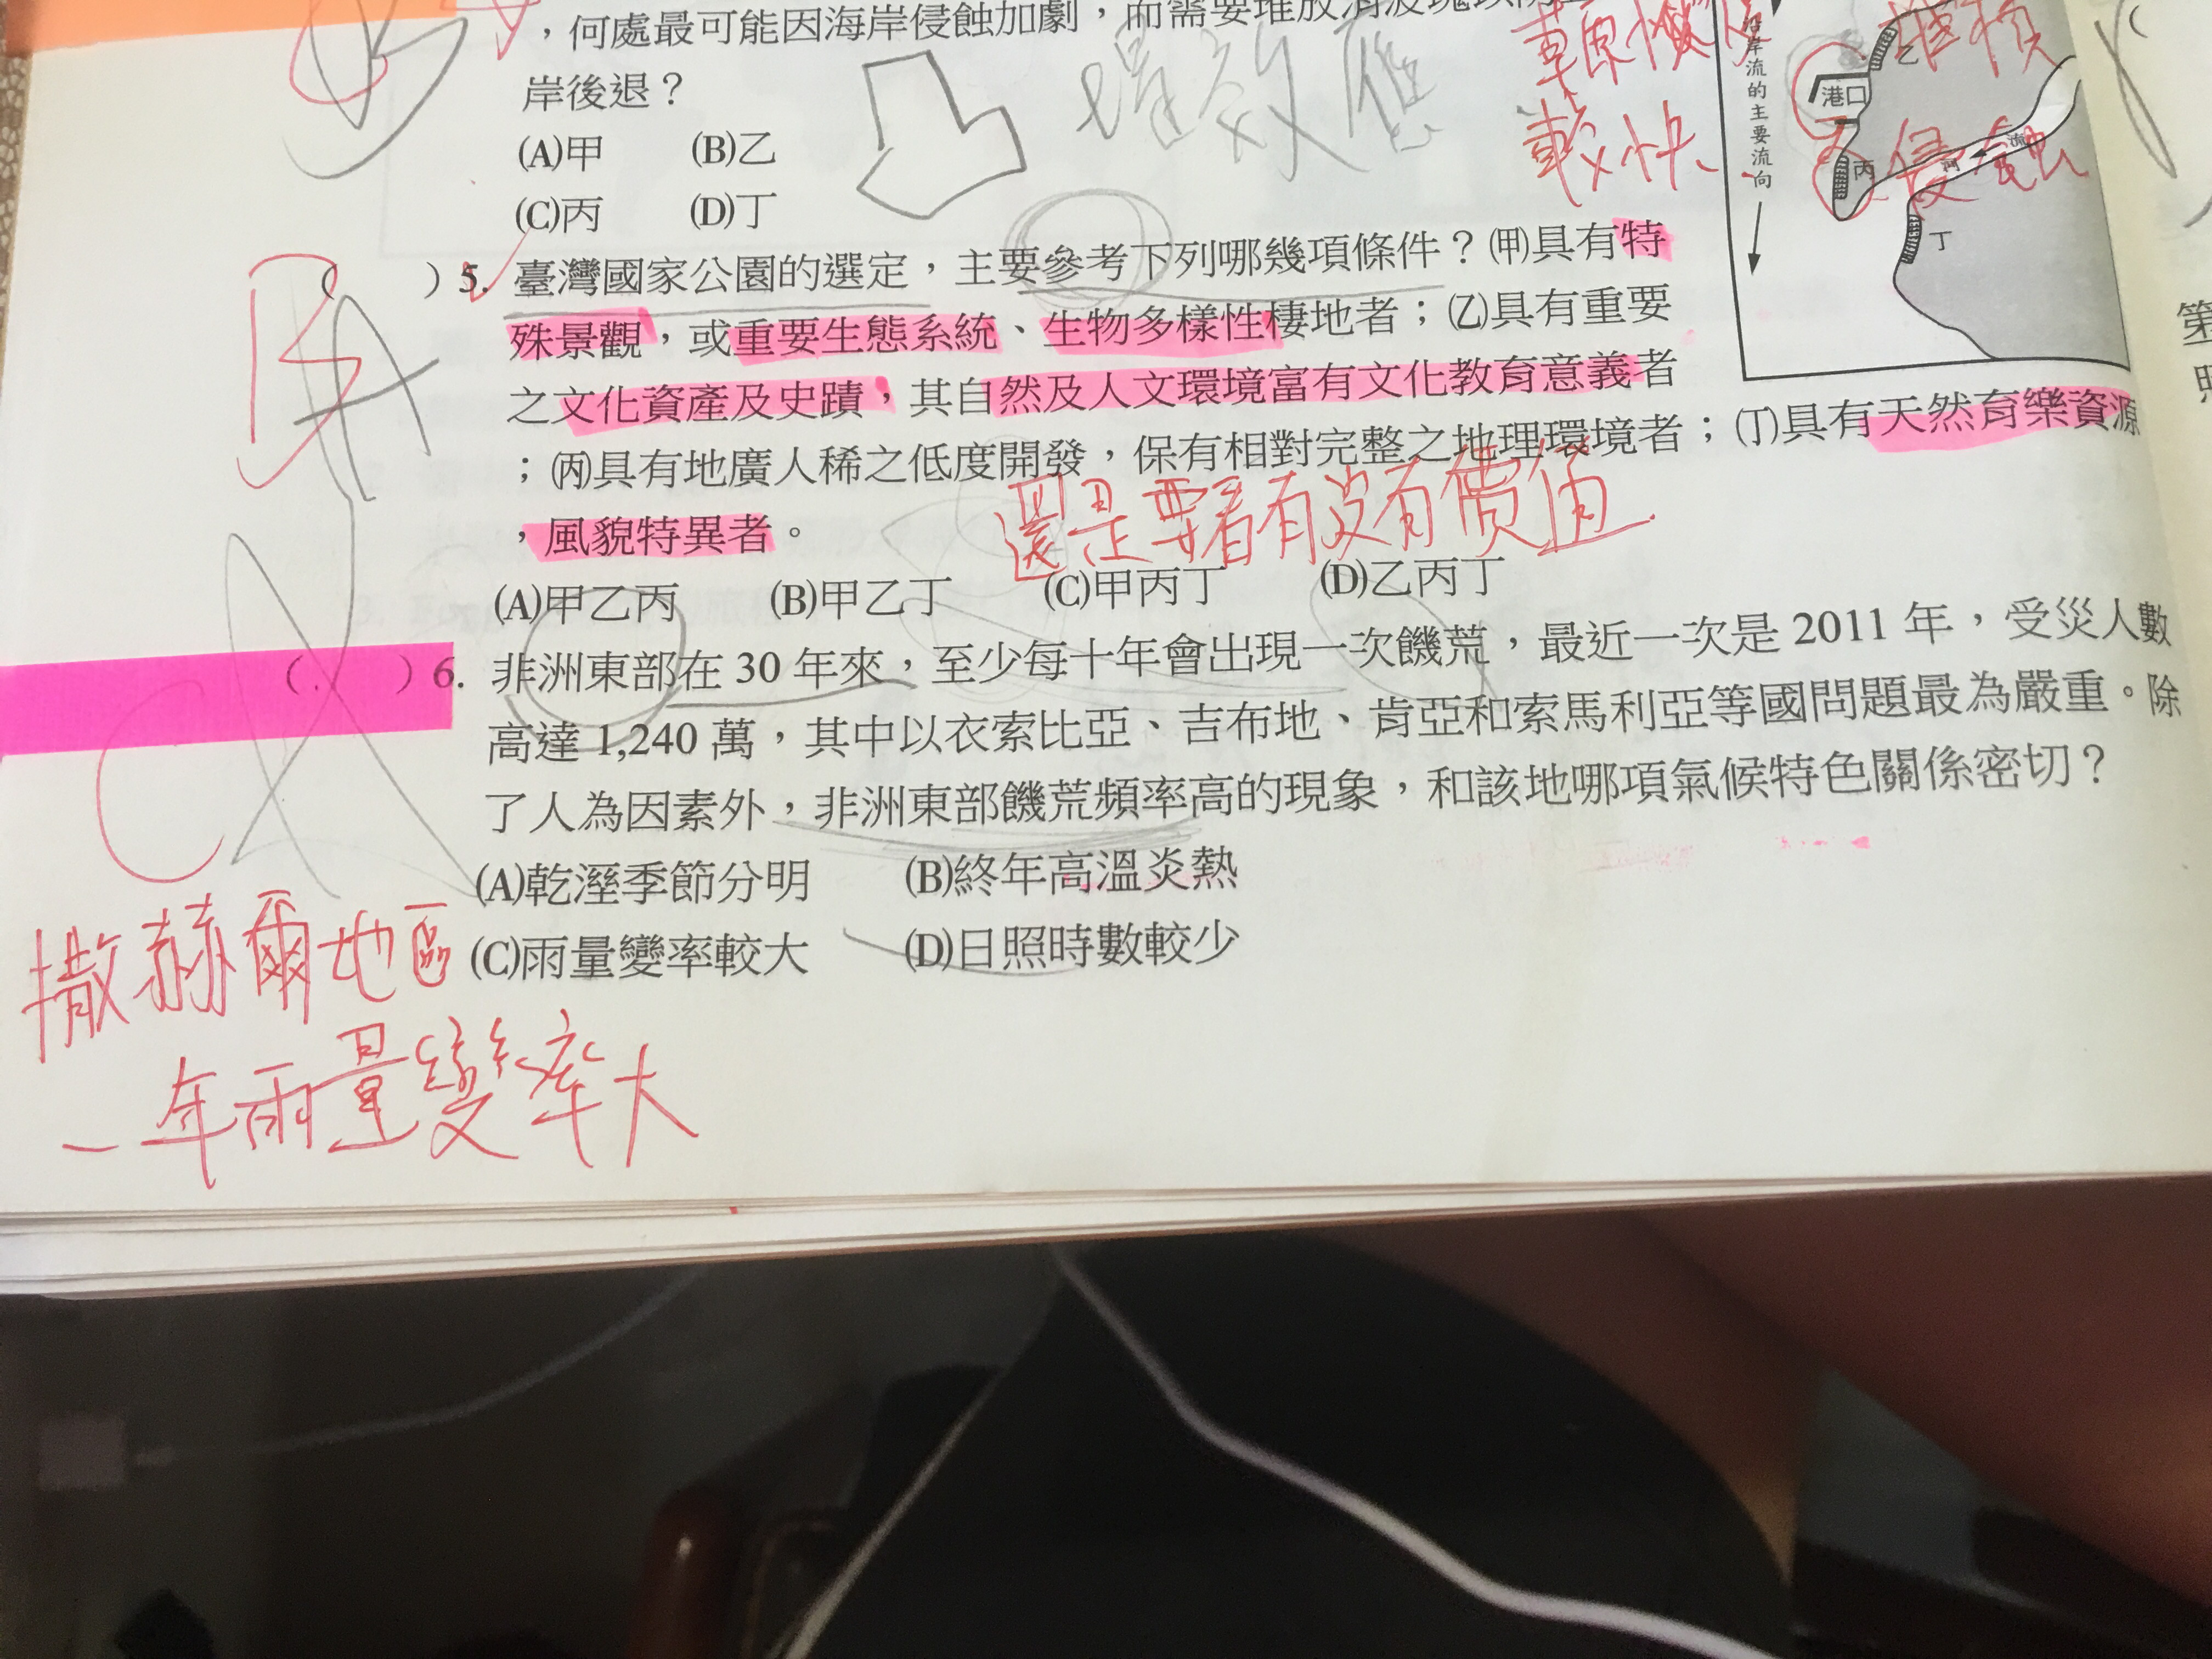 ，何處最可能因海岸侵蝕加劇，而需要堆放消波塊以防
岸後退？
(A)甲 (B)乙
(C)丙 (D)丁
應
較快
沿岸流的主要流向
乙
堆積
港口
丙
侵蝕
河流
丁
B
( ) 5. 臺灣國家公園的選定，主要參考下列哪幾項條件？(甲)具有特
殊景觀，或重要生態系統、生物多樣性棲地者；(乙)具有重要
之文化資產及史蹟，其自然及人文環境富有文化教育意義者
；(丙)具有地廣人稀之低度開發，保有相對完整之地理環境者；(丁)具有天然育樂資源
，風貌特異者。
還是要看有沒有價值
(A)甲乙丙 (B)甲乙丁 (C)甲丙丁 (D)乙丙丁
( ) 6. 非洲東部在 30 年來，至少每十年會出現一次饑荒，最近一次是 2011 年，受災人數
高達 1,240 萬，其中以衣索比亞、吉布地、肯亞和索馬利亞等國問題最為嚴重。除
了人為因素外，非洲東部饑荒頻率高的現象，和該地哪項氣候特色關係密切？
C
(A)乾溼季節分明 (B)終年高溫炎熱
(C)雨量變率較大 (D)日照時數較少
撒赫爾地區
－年雨量變率大
第